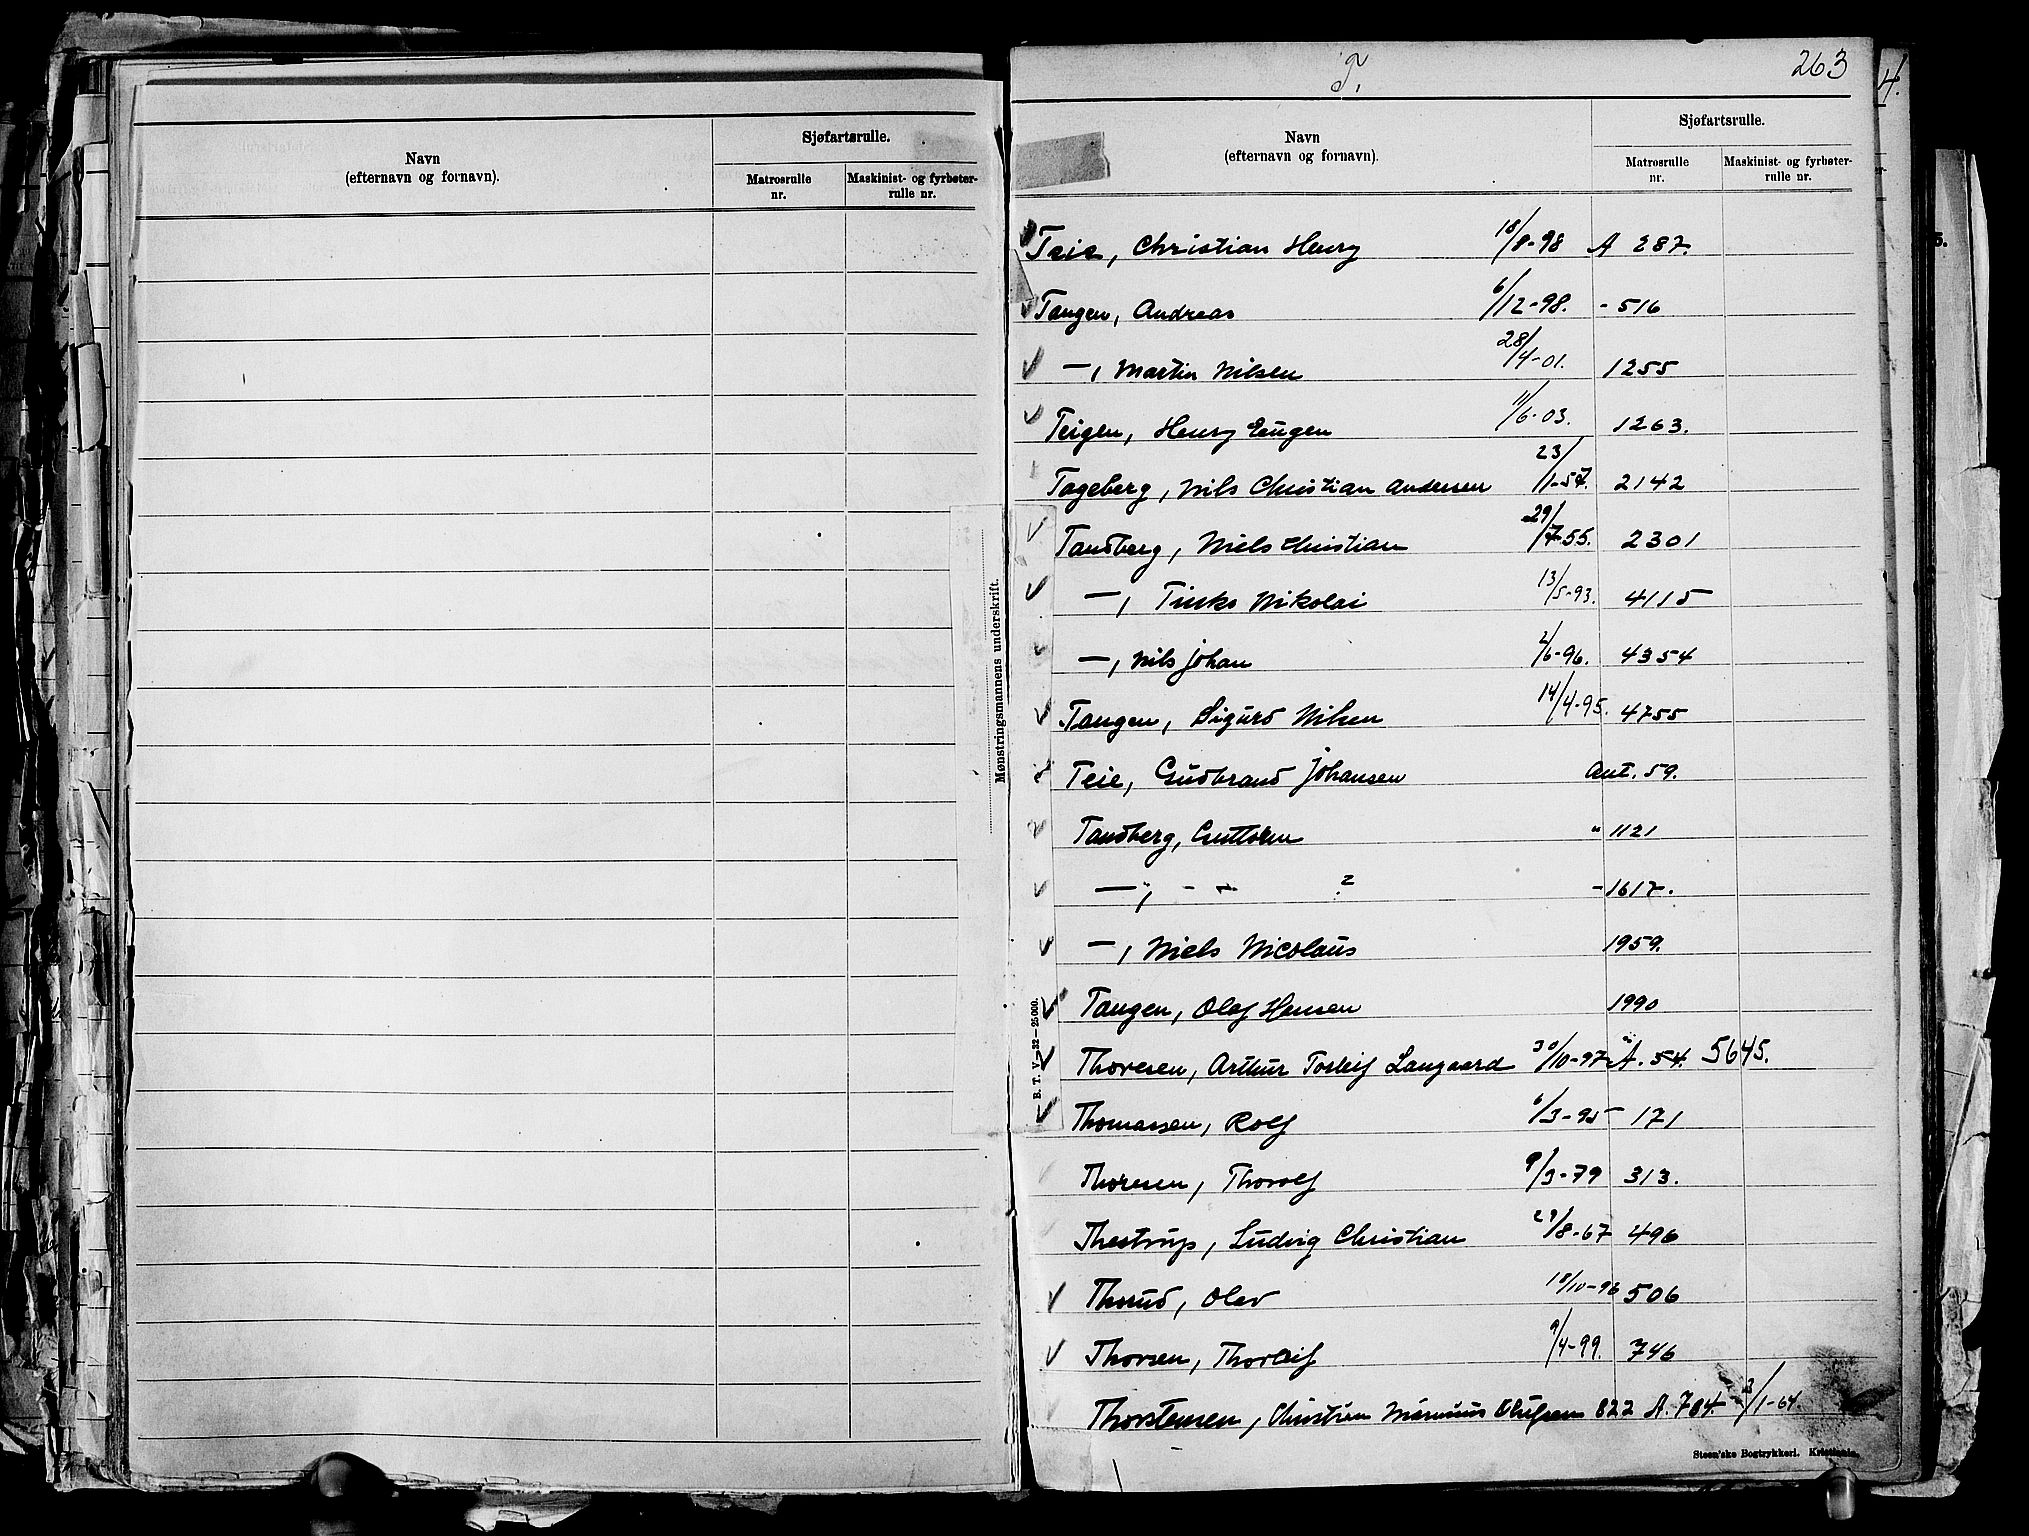 Navn
(efternavn og fornavn).
Sjøfartsrulle.
Matrosrulle
nr.
Maskinist- og fyrbøter-
rulle nr.
Mønstringsmannens underskrift.
B. T. V.—32—25000.
T.
263
4.
5.
Navn
(efternavn og fornavn).
Sjøfartsrulle.
Matrosrulle
nr.
Maskinist- og fyrbøter-
rulle nr.
Teie, Christian Henry 18/8-98 A 287.
Tangen, Andreas 6/12-98. - 516
—, Martin Nilsen 28/4-01. 1255
Teigen, Henry Eugen 11/6-03. 1263.
Tageberg, Nils Christian Andersen 23/1-57. 2142
Tandberg, Niels Christian 29/7-55. 2301
—, Nikolai 13/5-93. 4115
—, Nils Johan 2/6-96. 4354
Tangen, Sigurd Nilsen 14/4-95. 4755
Teie, Gudbrand Johansen Ant. 59.
Tandberg, Guttorm " 1121
—, - " - ? - 1617.
—, Niels Nicolaus 1959.
Tangen, Olaf Hansen 1990
Thoresen, Arthur Torleif Langaard 30/10-97 A. 54. 5645.
Thomassen, Rolf 6/3-95 - 171
Thoresen, Thorolf 9/3-79 313.
Thestrup, Ludvig Christian 29/8-67 496
Thorud, Olav 18/10-96 506
Thorsen, Thorleif 9/4-99. 746
Thorstensen, Christian Olufsen 822 A. 784. 3/1-64
Steen'ske Bogtrykkeri. Kristiania.